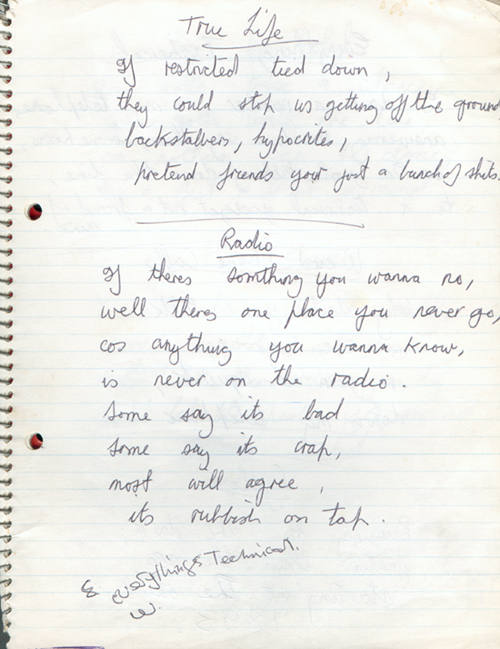 True Life
If restricted tied down,
they could stop us getting off the ground
backstabers, hypocrites,
pretend friends your just a bunch of shits.
Radio
If theres somthing you wanna no,
well theres one place you never go,
cos anything you wanna know,
is never on the radio.
Some say its bad
some say its crap,
most will agree,
its rubbish on tap.
& everythings Technical.